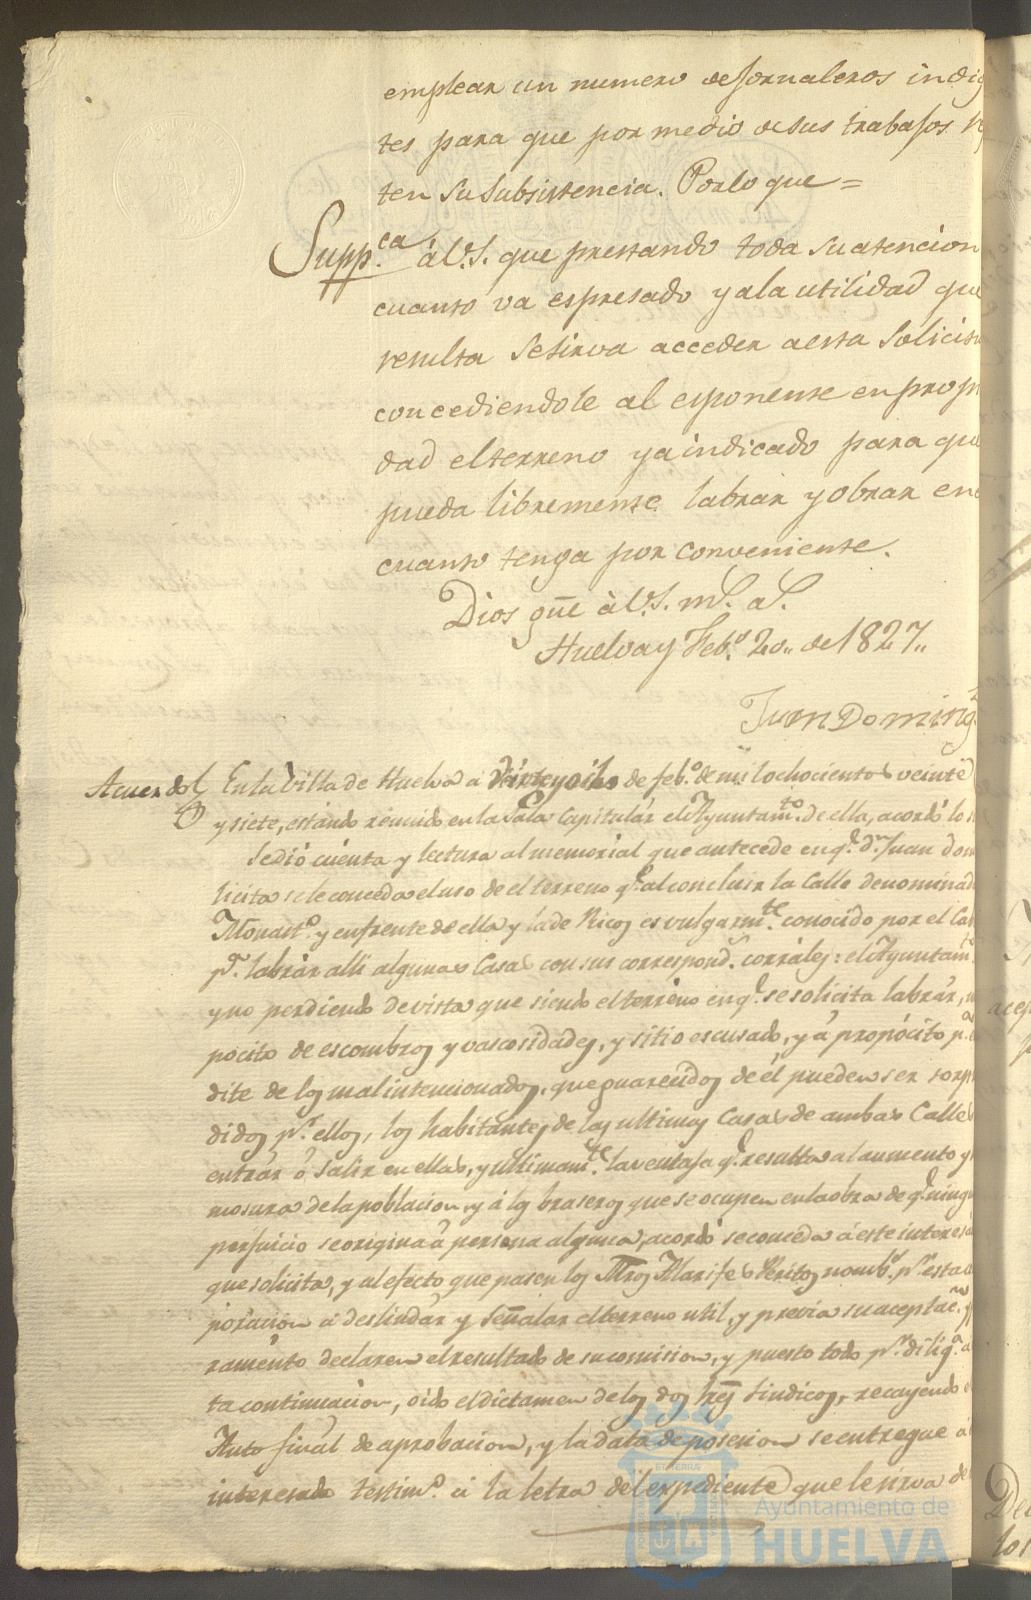 emplear un numero de Jornaleros indig
tes para que por medio de sus trabajos
ten su subsistencia. Por lo que =
Supp.ca á V.S. que prestando toda su atencion
cuanto va espresado y a la utilidad que
resulta se sirva acceder a esta solicitu
concediendole al esponente en propi
dad el terreno ya indicado para que
pueda libremente labrar y obrar en
cuanto tenga por conveniente.
Dios gue à V.S. ms. as.
Huelva y Feb.o 20,, de 1827,,
Juan Doming
Acuerdo En la Villa de Huelva à de feb.o de mil ochocientos veinte
y siete, estando reunido en la Sala Capitulár el Ayuntam.to de ella, acordó lo
Se dió cuenta y lectura al memorial que antecede en q.e d.n Juan dom
licita se le conceda el uso de el terreno q.e al concluir la Calle denominad
Monast.o y enfrente de ella y la de Ricos es vulgarm.te conocido por el Ca
p.a labrár alli algunas Casas con sus correspond.s corráles: el Ayuntam.to
y no perdiendo de vista que siendo el terreno en q.e se solicita labrár,
pocito de escombros y vascosidades, y sitio escusado, y á propócito p.a
dite de los mal intencionados, que guarecidos de él pueden ser sorp
didos p.r ellos, los habitantes de las ultimas Casas de ambas Calles
entrár ó salir en ellas, y ultimam.te la ventaja q.e resulta al aumento y
mosura de la poblacion, y á los braseros que se ocupen en la obra de q.e ningu
perjuicio se origina á persona alguna, acordó se conceda á este interesa
que solicita, y al efecto que pasen los Mros Alarifes Peritos nomb.s p.r esta
poracion á deslindár y señalar el terreno util, y previa su aceptac.n y
ramento declaren el resultado de su comision, y puesto todo p.r dilig.a á
ta continuacion, oido el dictamen de los dos Sres Sindicos, recayendo
Auto finál de aprobacion, y la data de posesion se entregue á
interesado testim.o á la letra del expediente que le sirva de
Ayuntamiento de
HUELVA